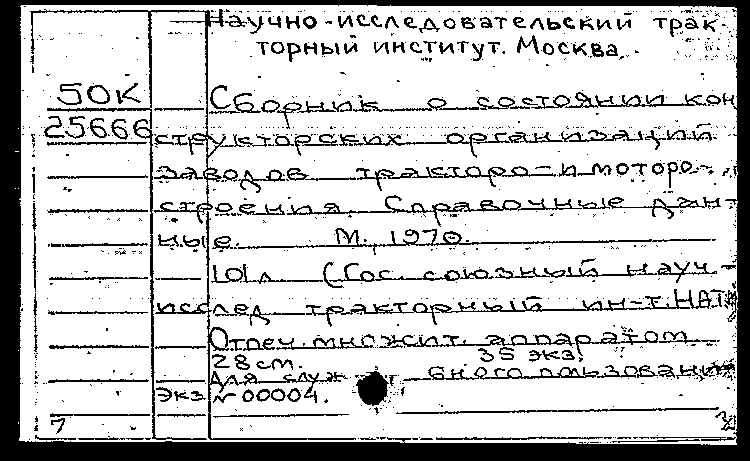 Научно-исследовательский трак-
торный институт. Москва.
50К
25666
Сборник о состоянии кон
структорских организаций
заводов тракторо- и моторо-
строения. Справочные дан-
ные. М., 1970.
101л (Гос. союзный науч.-
исслед тракторный ин-т. НАТИ
Отпеч. множит. аппаратом
28 см. 35 экз.
Для служ бного пользования
Экз №00004.
7